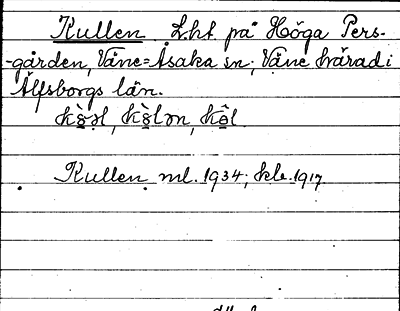 Kullen Lht på Höga Pers-
-gården, Väne=Åsaka sn; Väne härad i
Älfsborgs län.
Kullen ml. 1934; kle. 1917